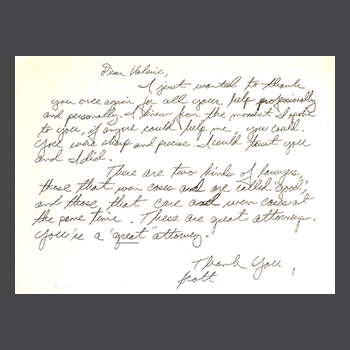 Dear Valerie,
I just wanted to thank
you once again for all your help professionally
and personally. I knew from the moment I spoke
to you, if anyone could help me, you could.
You were sharp and precise. I could trust you
and I did.
There are two kinds of lawyers,
those that won cases and are called "good",
and those that care and won cases at
the same time. These are great attorneys.
You're a "great" attorney.
Thank You,
Scott